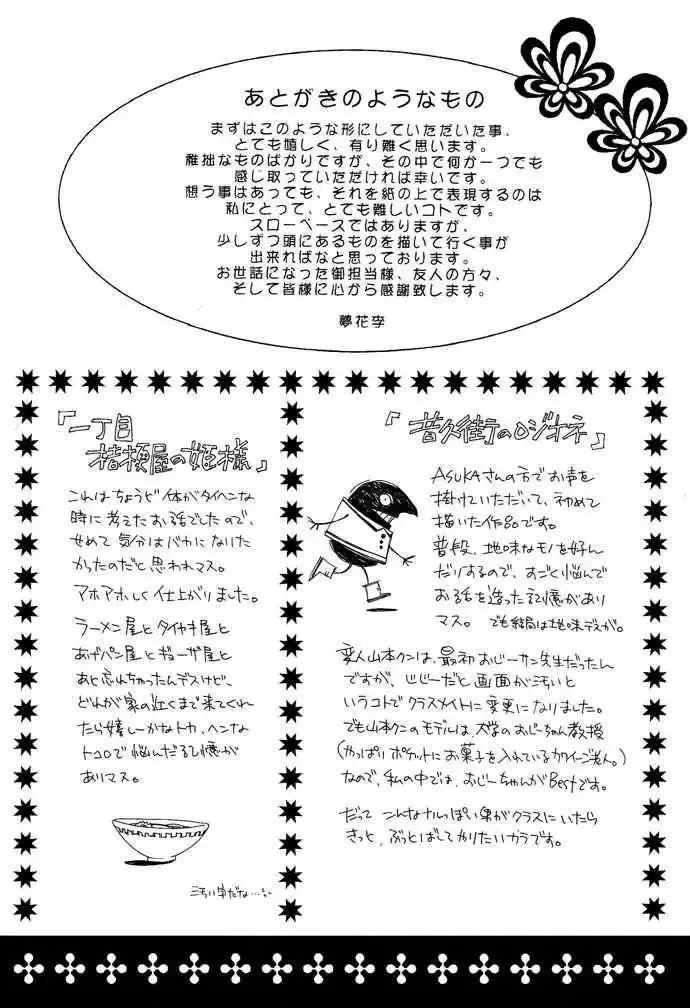 あとがきのようなもの
まずはこのような形にしていただいた事、
とても嬉しく、有り難く思います。
稚拙なものばかりですが、その中で何か一つでも
感じ取っていただければ幸いです。
想う事はあっても、それを紙の上で表現するのは
私にとって、とても難しいコトです。
スローペースではありますが、
少しずつ頭にあるものを描いて行く事が
出来ればなと思っております。
お世話になった御担当様、友人の方々、
そして皆様に心から感謝致します。
夢花李
『一丁目
桔梗屋の姫様』
これはちょうど体がタイヘンな
時に考えたお話でしたので、
せめて気分はバカになりた
かったのだと思われマス。
アホアホしく仕上がりました。
ラーメン屋とタイヤキ屋と
あげパン屋とギョーザ屋と
あと忘れちゃったんデスけど、
どれが家の近くまで来てくれ
たら嬉しーかなトカ、ヘンな
トコロで悩んだ記憶が
ありマス。
『普久街のロジオネ』
ASUKAさんの方でお声を
掛けていただいて、初めて
描いた作品です。
普段、地味なモノを好ん
だりするので、すごく悩んで
お話を造った記憶があり
マス。でも結局は地味デスが。
変人山本クンは、最初おじーサン先生だったん
ですが、じじーだと画面が汚いと
いうコトでクラスメイトに変更になりました。
でも山本クンのモデルは、大学のおじーちゃん教授
(やっぱりポケットにお菓子を入れているカワイージ老人。)
なので、私の中では、おじーちゃんがBestです。
だって こんなナルっぽい男がクラスにいたら
きっと、ぶっとばしてやりたいカラです。